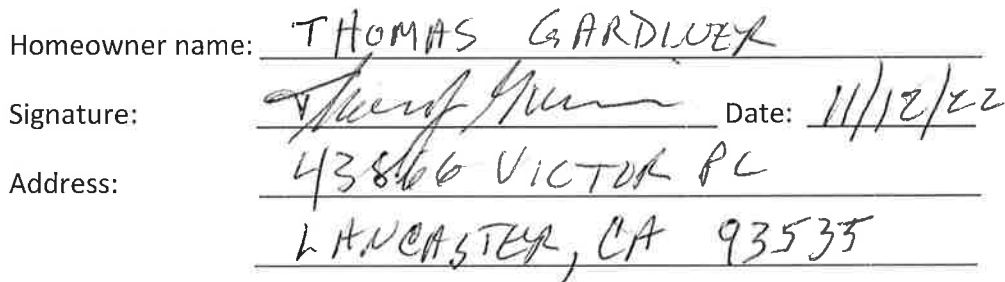 Homeowner name: THOMAS GARDINER
Signature: Date: 11/12/22
Address: 43866 VICTOR PL
LANCASTER, CA 93535